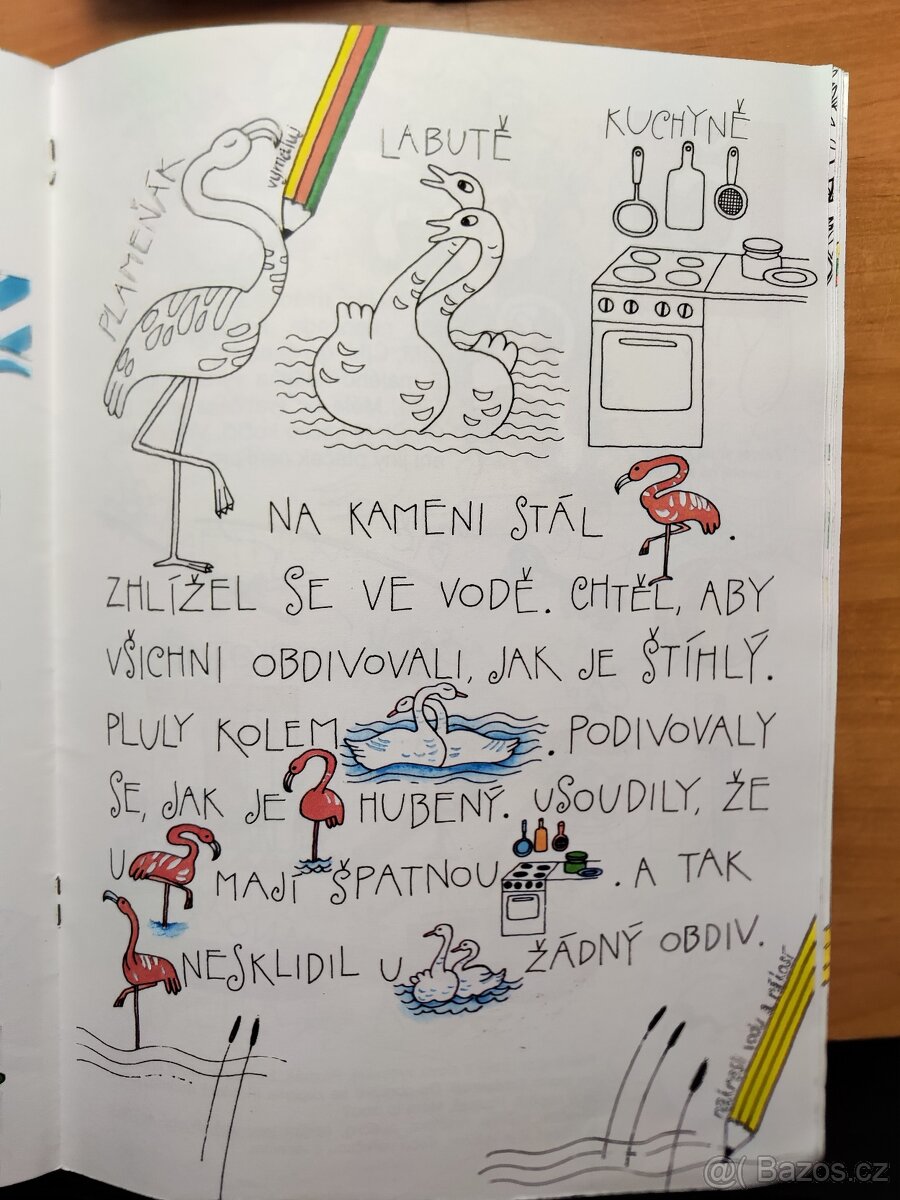 PLAMEŇÁK
vymaluj
LABUTĚ
KUCHYNĚ
NA KAMENI STÁL .
ZHLÍŽEL SE VE VODĚ. CHTĚL, ABY
VŠICHNI OBDIVOVALI, JAK JE ŠTÍHLÝ.
PLULY KOLEM . PODIVOVALY
SE, JAK JE HUBENÝ. USOUDILY, ŽE
U MAJÍ ŠPATNOU . A TAK
NESKLIDIL U ŽÁDNÝ OBDIV.
vodu a
@( Bazos.cz